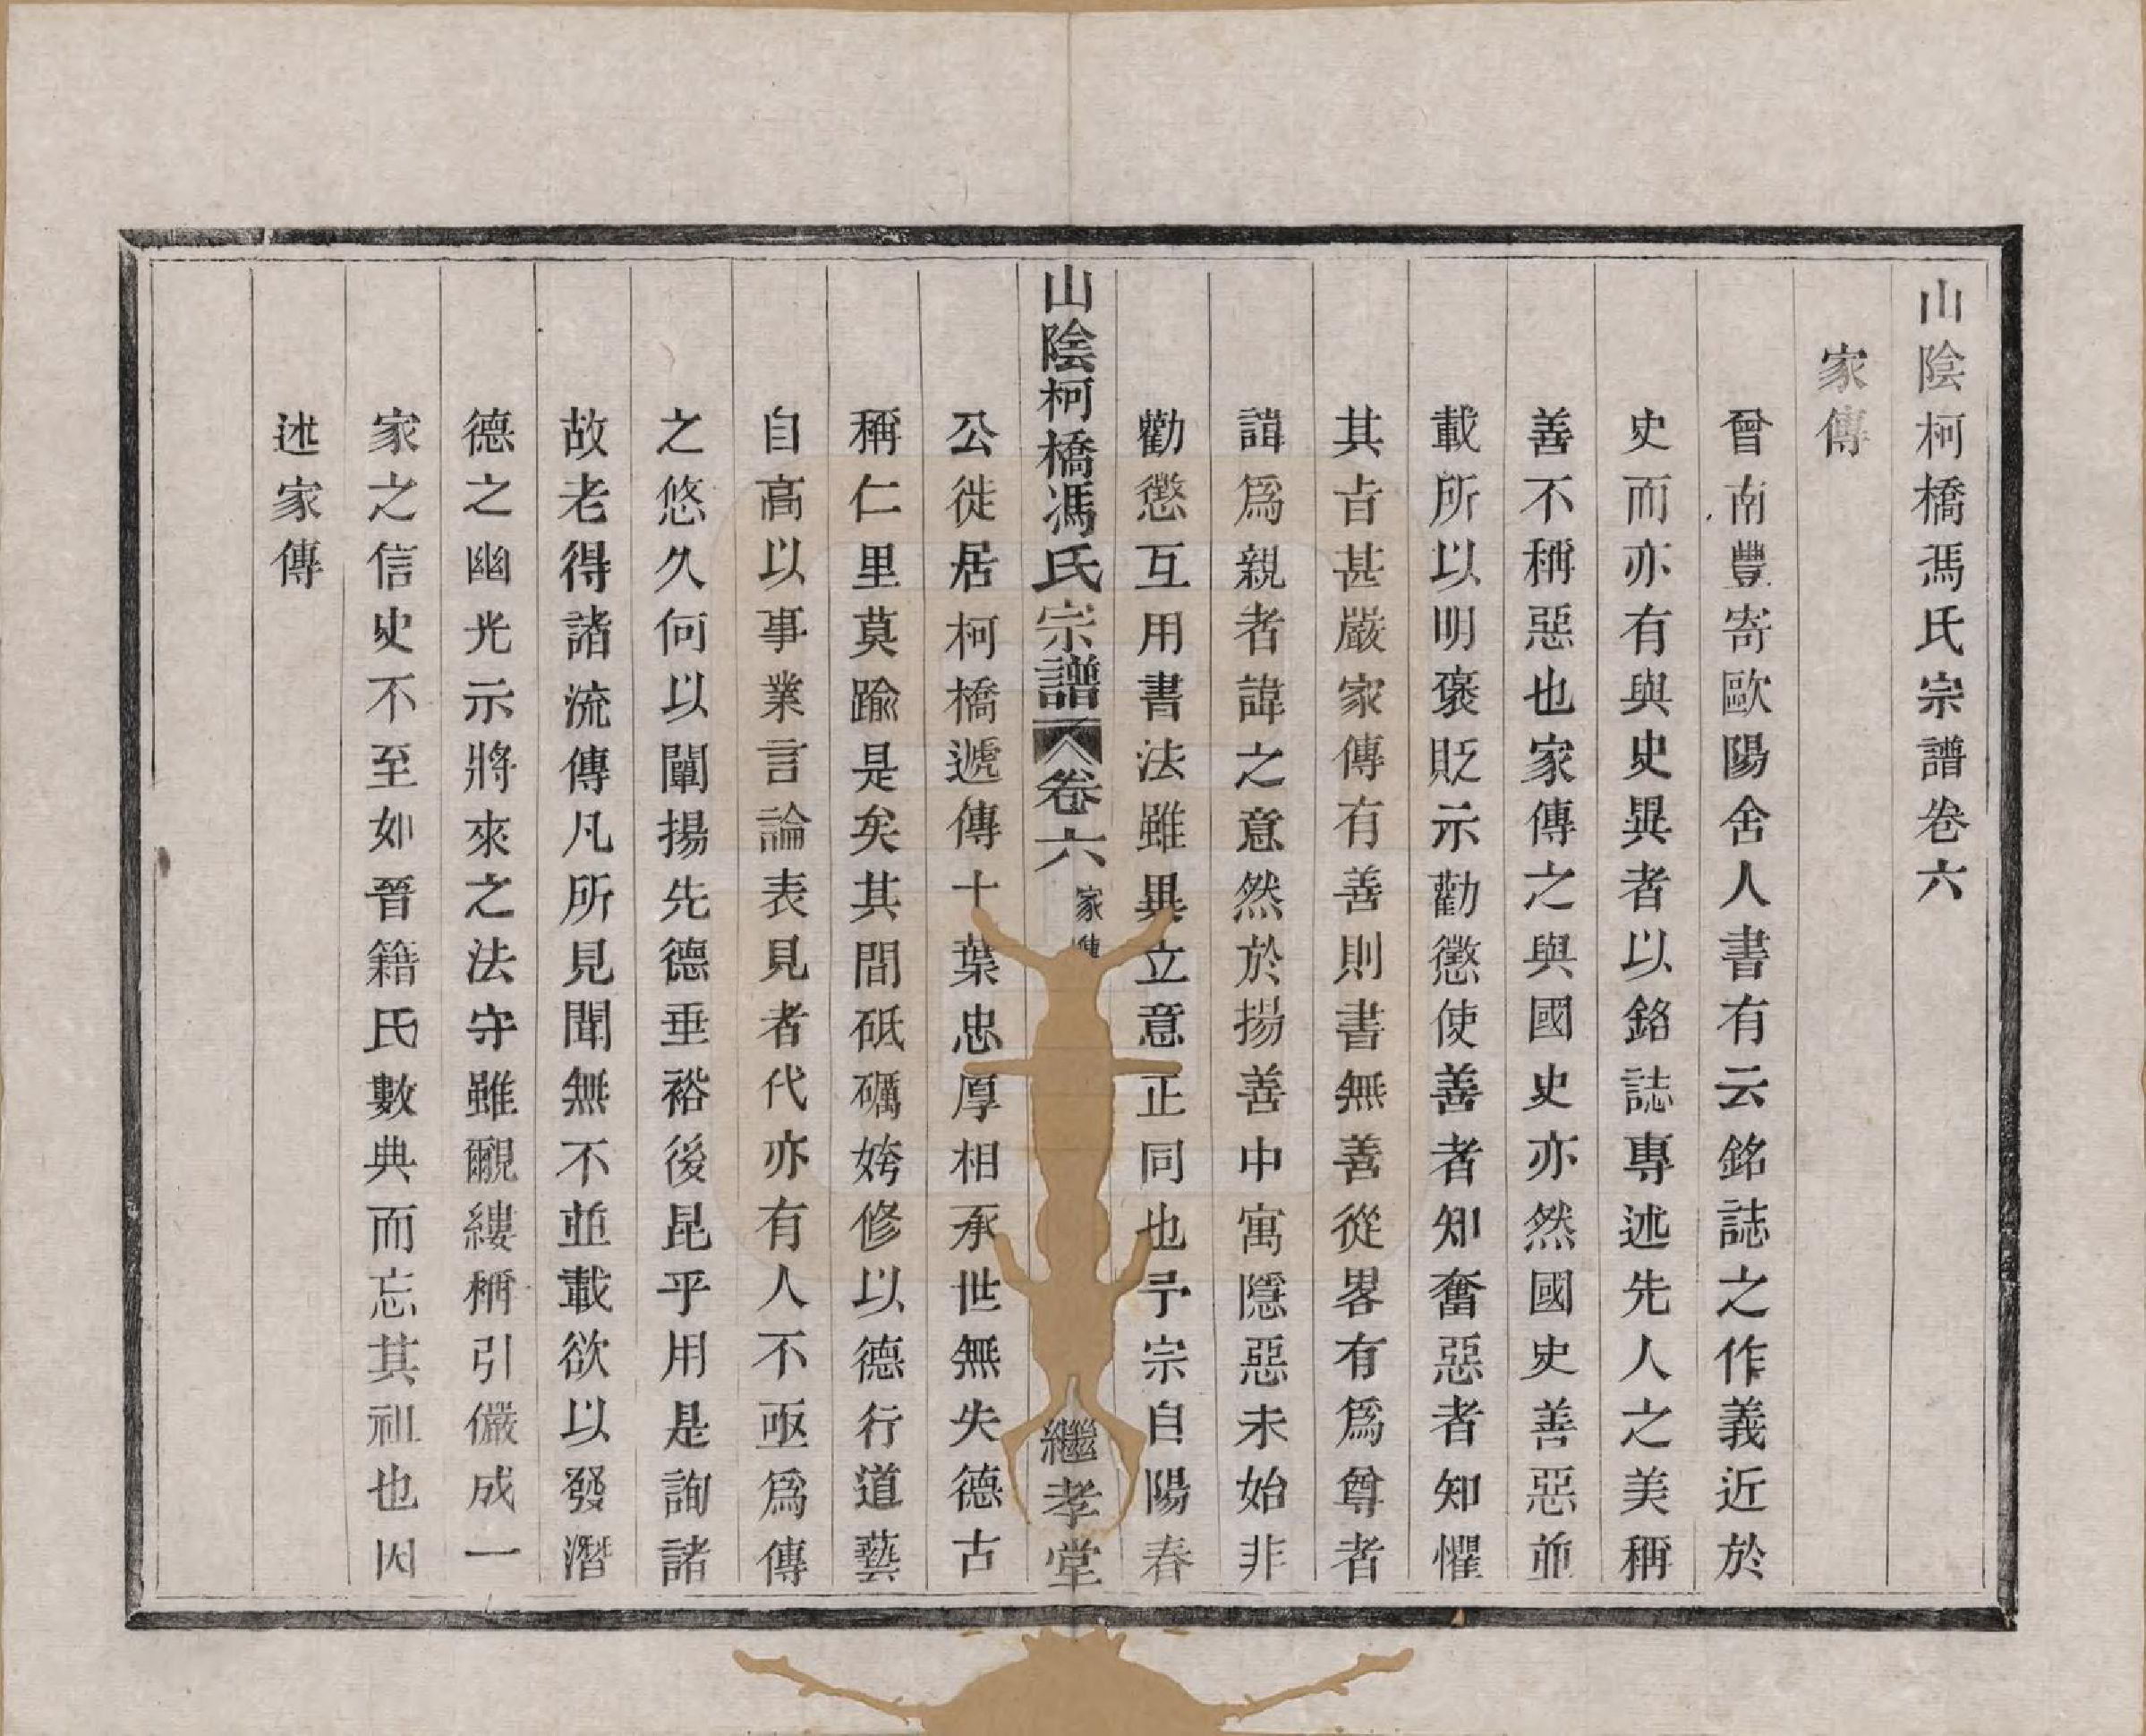 山陰柯橋馮氏宗譜卷六
家傳
曾南豐寄歐陽舍人書有云銘誌之作義近於
史而亦有與史異者以銘誌專述先人之美稱
善不稱惡也家傳之與國史亦然國史善惡並
載所以明褒貶示勸懲使善者知奮惡者知懼
其㫖甚嚴家傳有善則書無善從畧有爲尊者
諱爲親者諱之意然於揚善中寓隱惡未始非
勸懲互用書法雖異立意正同也予宗自陽春
山陰柯橋馮氏宗譜 卷六 家傳 繼孝堂
公徙居柯橋遞傳十葉忠厚相承世無失德古
稱仁里莫踰是矣其間砥礪姱修以德行道藝
自高以事業言論表見者代亦有人不亟爲傳
之悠久何以闡揚先德垂裕後昆乎用是詢諸
故老得諸流傳凡所見聞無不並載欲以發潛
德之幽光示將來之法守雖覼縷稱引儼成一
家之信史不至如晉籍氏數典而忘其祖也因
述家傳